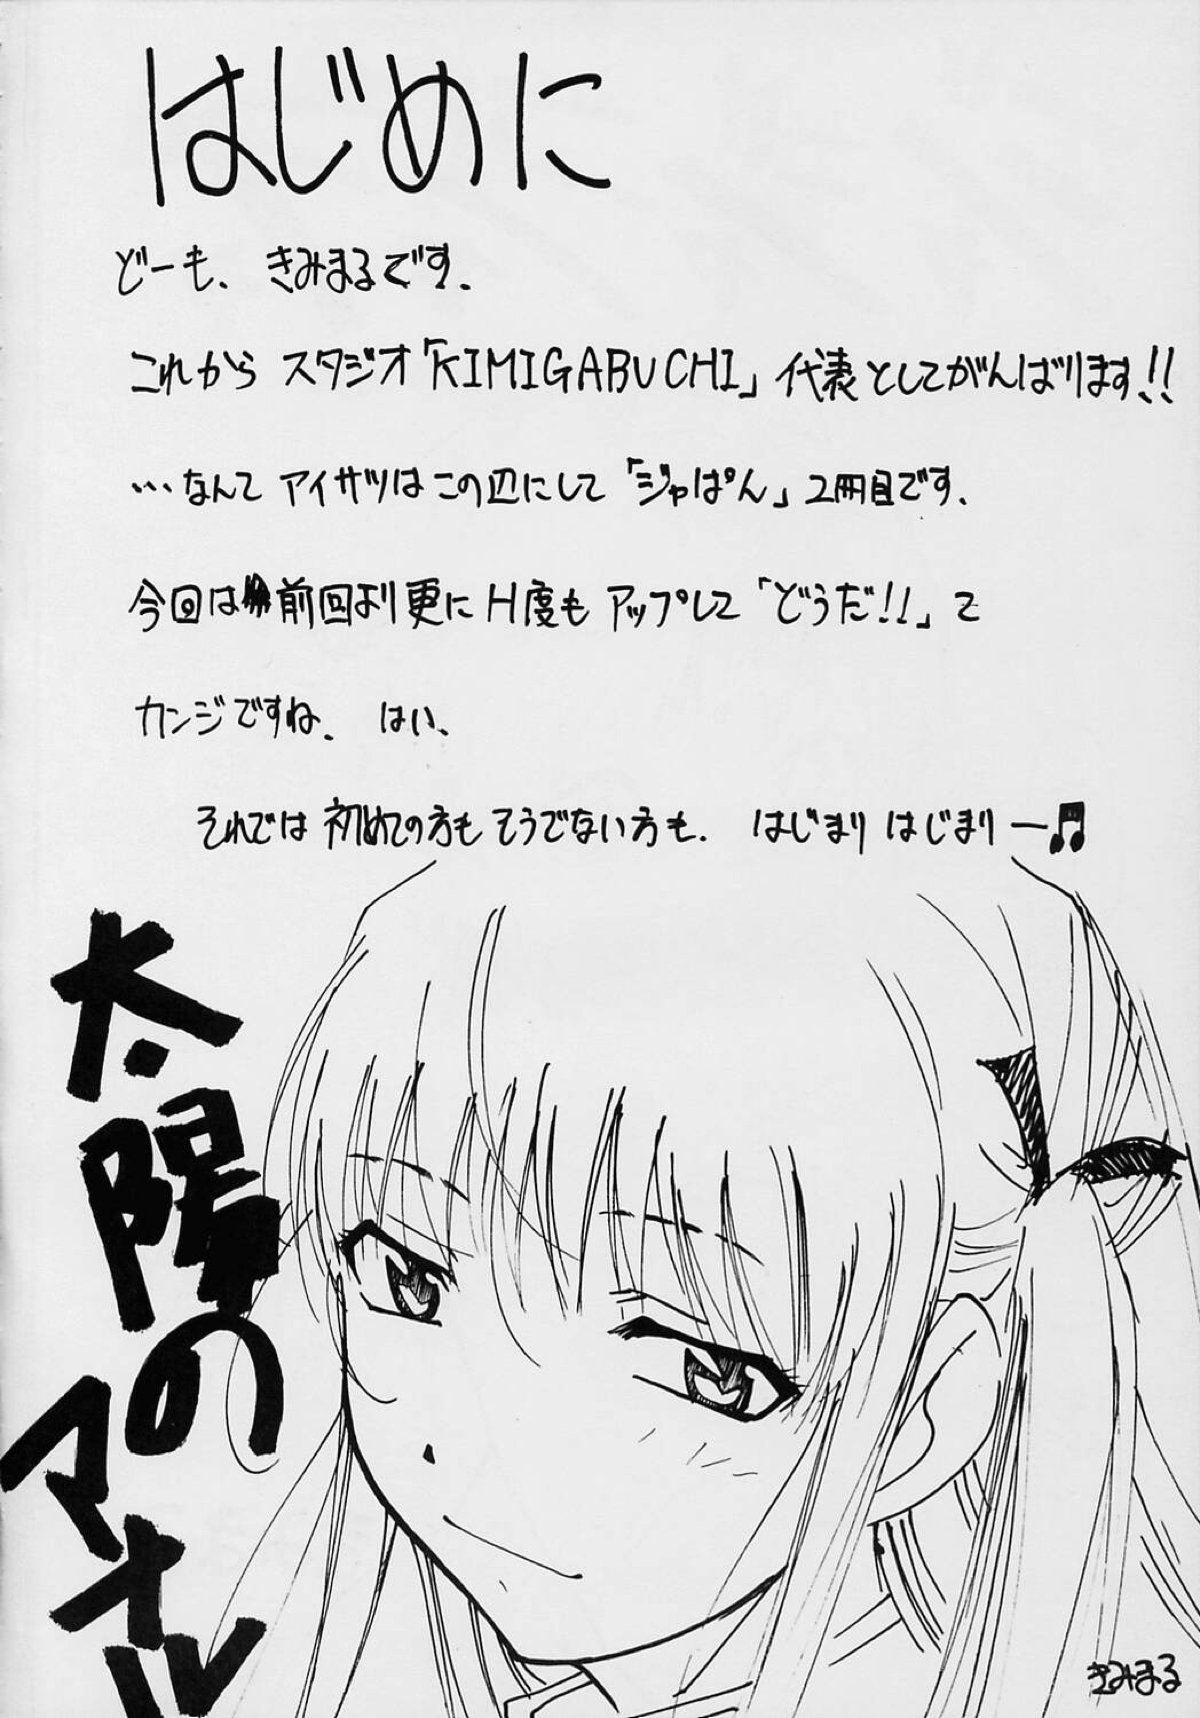 はじめに
どーも、きみまるです。
これから スタジオ「KIMIGABUCHI」代表としてがんばります!!
…なんて アイサツはこの辺にして「ジャぱん」2冊目です。
今回は前回より更にH度もアップして「どうだ!!」て
カンジですね。 はい、
それでは 初めての方も そうでない方も、 はじまり はじまりー♫
太陽の
マオル
きみまる